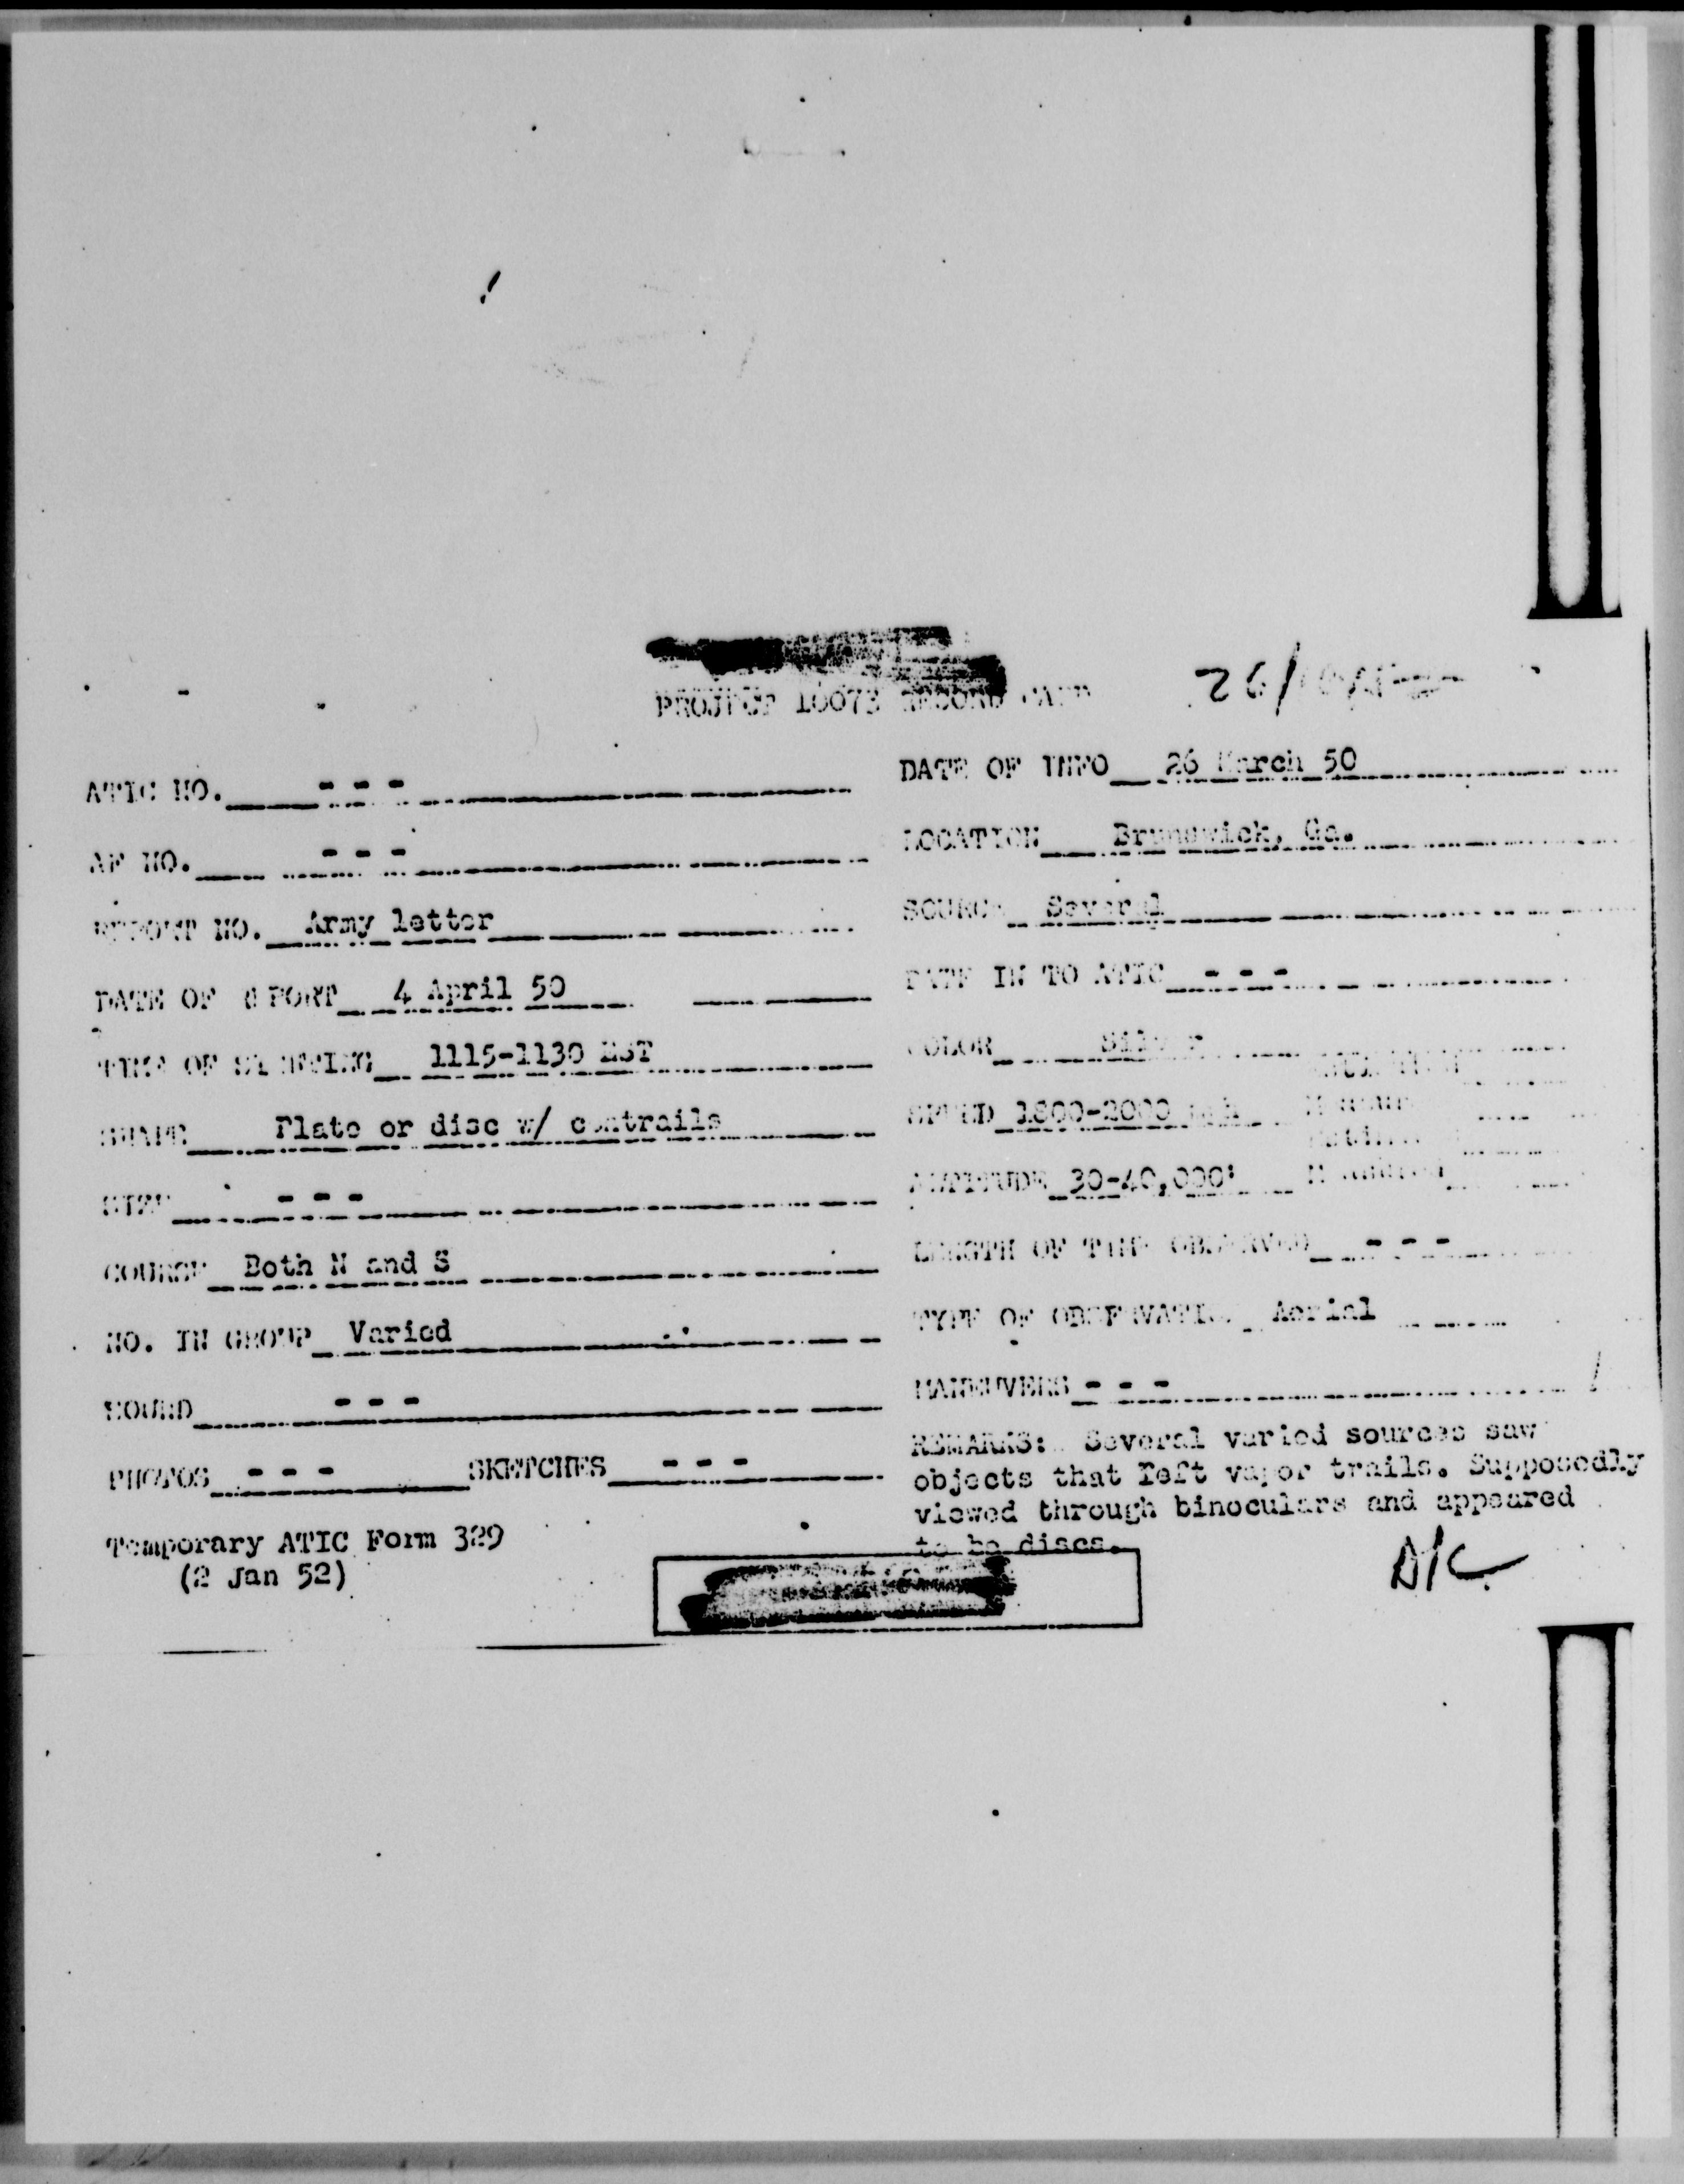 PROJECT 10073 RECORD CARD
ATIC NO. - - -
AF NO. - - -
REPORT NO. Army letter
DATE OF REPORT 4 April 50
TIME OF SIGHTING 1115-1130 EST
SHAPE Plate or disc w/ contrails
SIZE - - -
COURSE Both N and S
NO. IN GROUP Varied
SOUND - - -
PHOTOS - - - SKETCHES - - -
Temporary ATIC Form 329
(2 Jan 52)
DATE OF INFO 26 March 50
LOCATION Brunswick, Ga.
SOURCE Several
DATE IN TO ATIC - - -
COLOR Silver
SPEED 1800-2000 mph
ALTITUDE 30-40,000'
LENGTH OF TIME OBSERVED - - -
TYPE OF OBSERVATION Aerial
MANEUVERS - - -
REMARKS: Several varied sources saw
objects that left vapor trails. Supposedly
viewed through binoculars and appeared
to be discs.
A/C